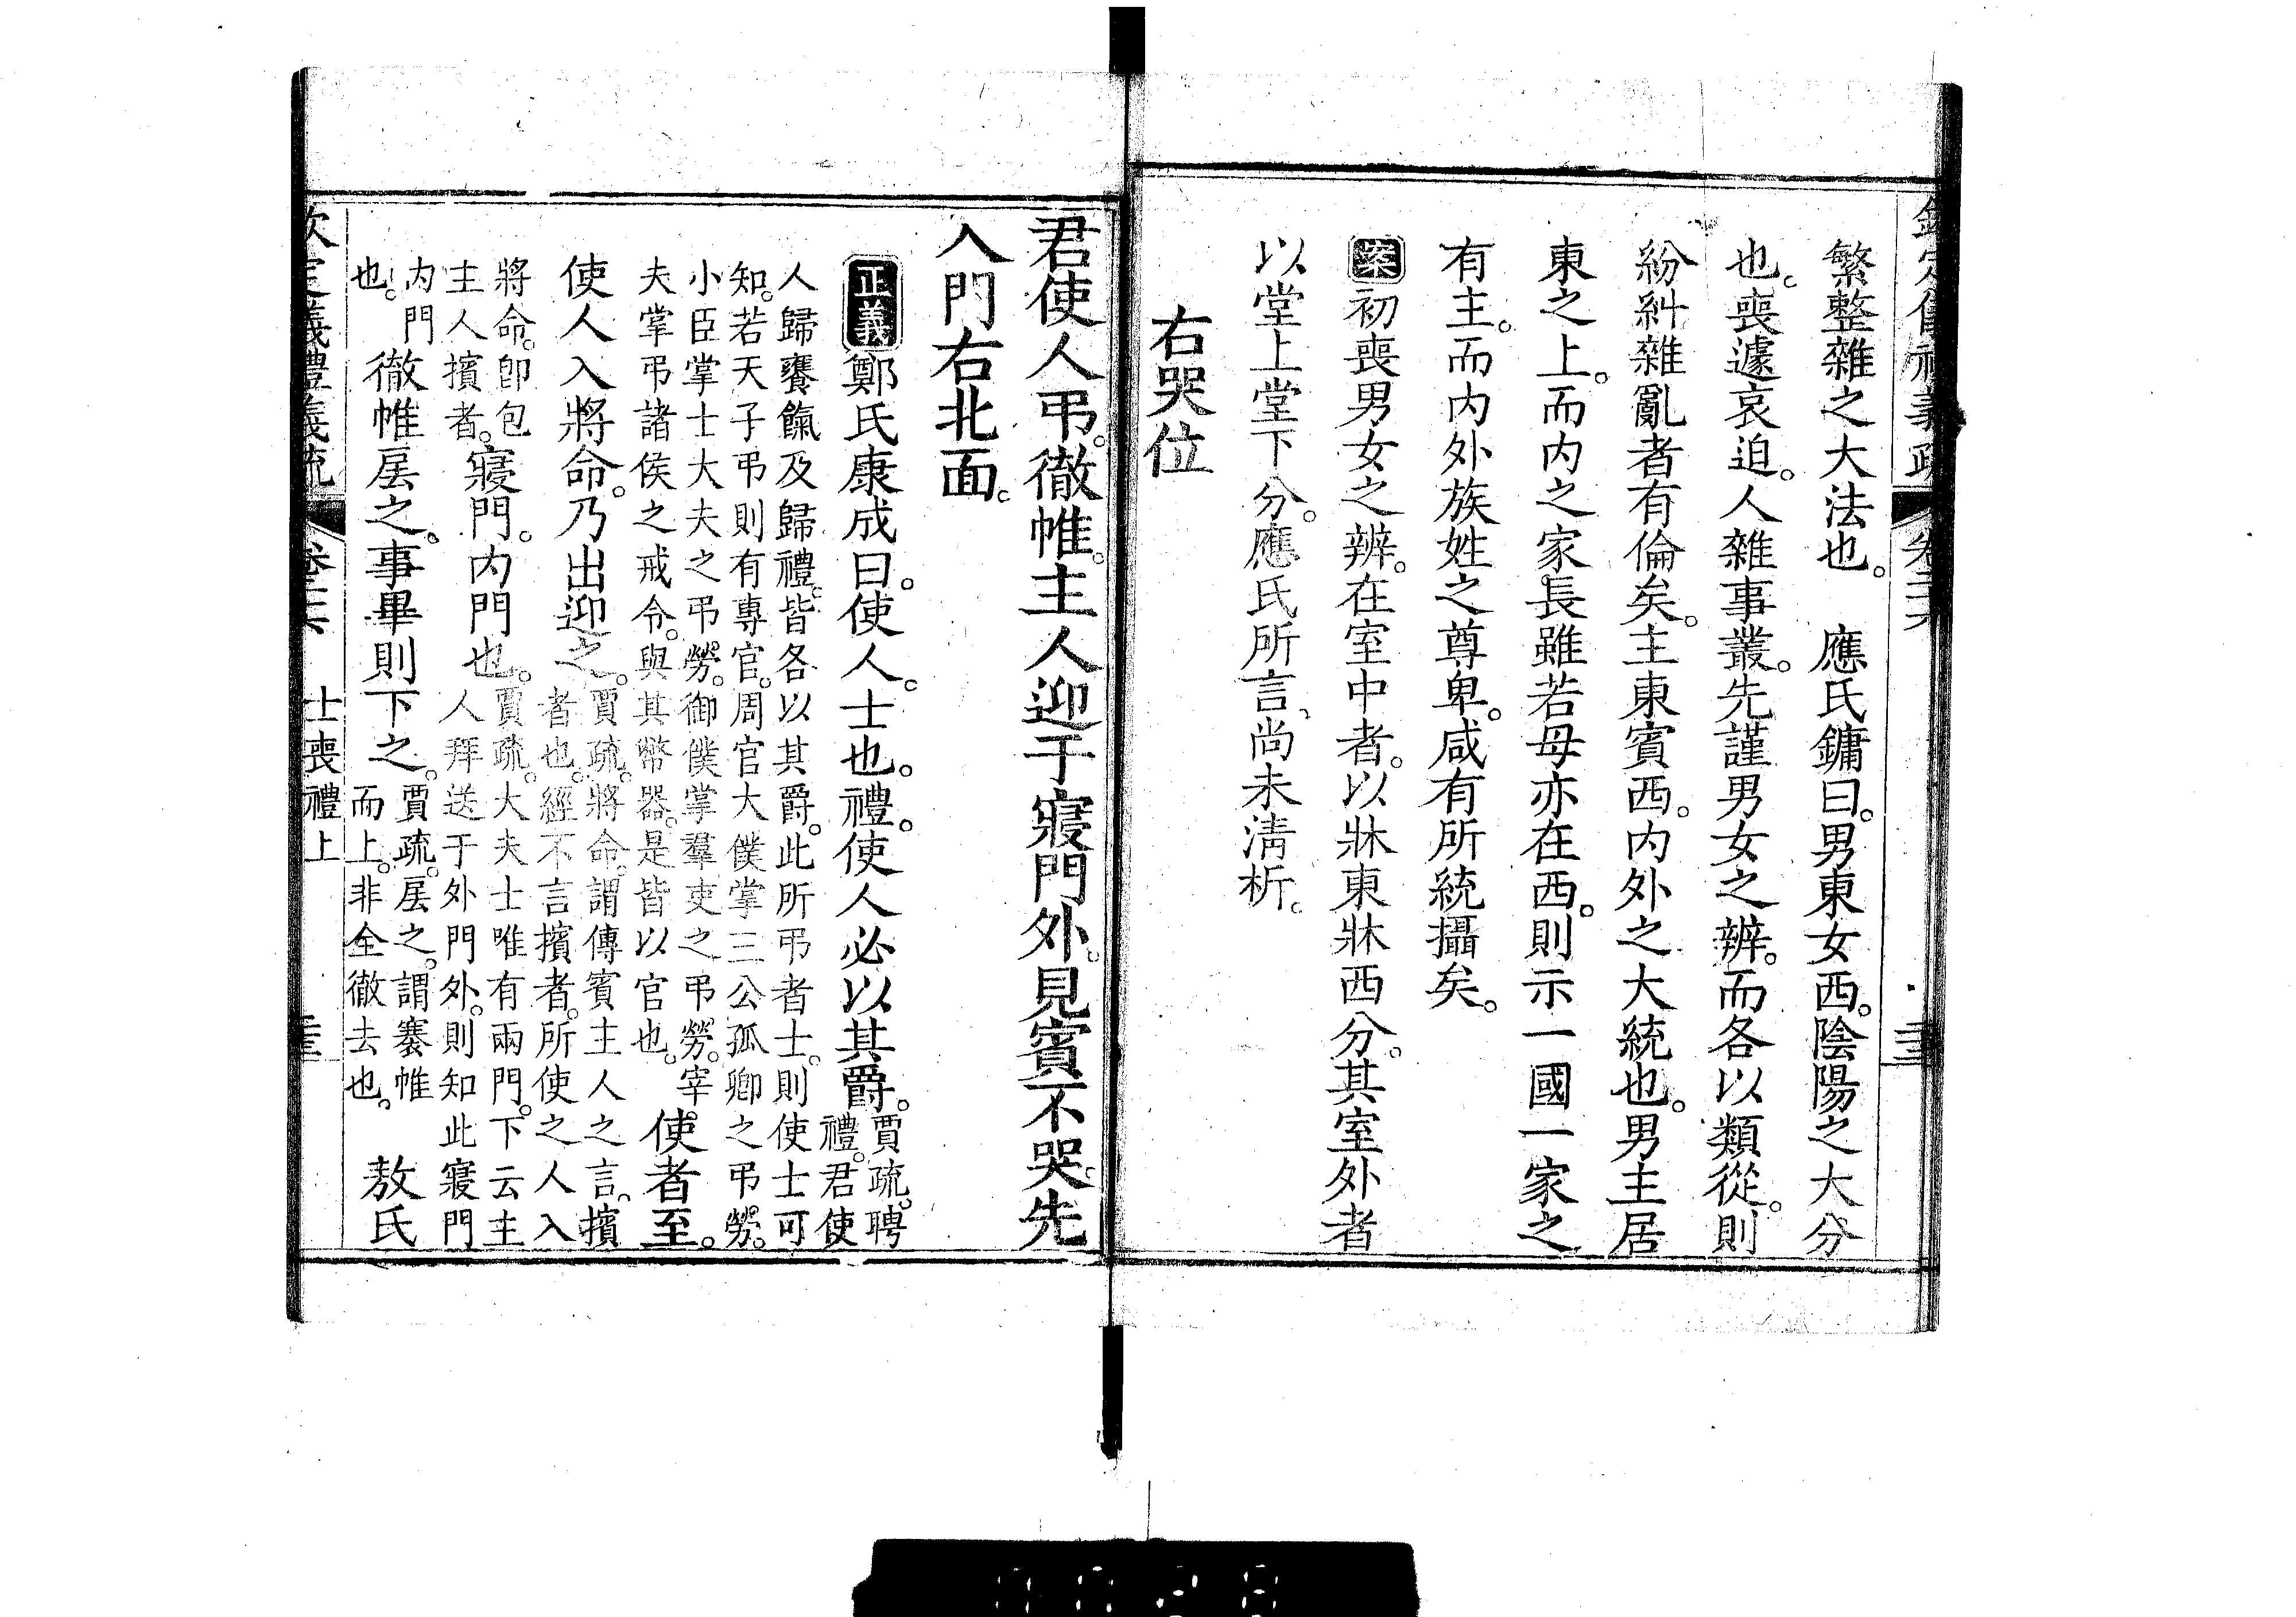 繁整雜之大法也。　應氏鏞曰。男東女西。陰陽之大分
也。喪遽哀迫。人雜事叢。先謹男女之辨。而各以類從。則
紛糾雜亂者有倫矣。主東賓西。內外之大統也。男主居
東之上。而內之家長雖若母亦在西。則示一國一家之
有主。而內外族姓之尊卑。咸有所統攝矣。
案初喪男女之辨。在室中者。以牀東牀西分。其室外者
以堂上堂下分。應氏所言、尚未淸析。
右哭位
君使人弔。徹帷。主人迎于寢門外。見賓不哭。先
入門右北面。
正義鄭氏康成曰。使人。士也。禮。使人必以其爵。賈疏。聘
禮。君使
人歸饔餼及歸禮。皆各以其爵。此所弔者士。則使士可
知。若天子弔則有專官。周官大僕掌三公孤卿之弔勞。
小臣掌士大夫之弔勞。御僕掌羣吏之弔勞。宰
夫掌弔諸侯之戒令。與其幣器。是皆以官也。使者至。
使人入將命。乃出迎之。賈疏。將命。謂傳賓主人之言。擯
者也。經不言擯者。所使之人入
將命。卽包
主人擯者。寢門。內門也。賈疏。大夫士唯有兩門。下云主
人拜送于外門外。則知此寢門
內門
也。徹帷扆之。事畢則下之。賈疏。扆之。謂褰帷
而上。非全徹去也。敖氏
士喪禮上